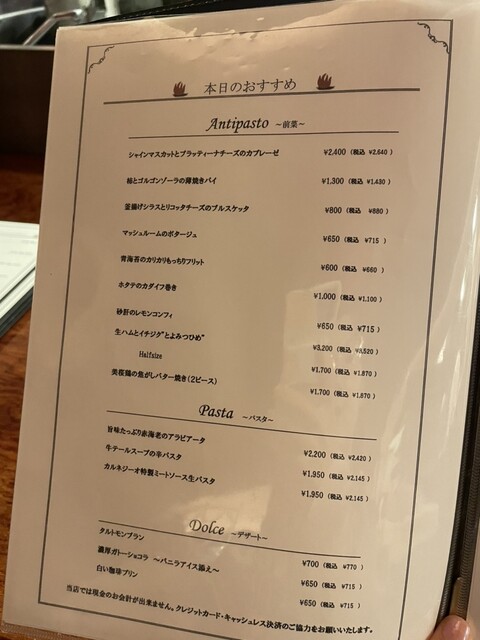 本日のおすすめ
Antipasto ～前菜～
シャインマスカットとブラッティーナチーズのカプレーゼ ¥2,400（税込 ¥2,640）
柿とゴルゴンゾーラの薄焼きパイ ¥1,300（税込 ¥1,430）
釜揚げシラスとリコッタチーズのブルスケッタ ¥800（税込 ¥880）
マッシュルームのポタージュ ¥650（税込 ¥715）
青海苔のカリカリもっちりフリット ¥600（税込 ¥660）
ホタテのカダイフ巻き ¥1,000（税込 ¥1,100）
砂肝のレモンコンフィ ¥650（税込 ¥715）
生ハムとイチジク"とよみつひめ" ¥3,200（税込 ¥3,520）
Halfsize ¥1,700（税込 ¥1,870）
美桜鶏の焦がしバター焼き（2ピース） ¥1,700（税込 ¥1,870）
Pasta ～パスタ～
旨味たっぷり赤海老のアラビアータ ¥2,200（税込 ¥2,420）
牛テールスープの辛パスタ ¥1,950（税込 ¥2,145）
カルネジーオ特製ミートソース生パスタ ¥1,950（税込 ¥2,145）
Dolce ～デザート～
タルトモンブラン ¥700（税込 ¥770）
濃厚ガトーショコラ ～バニラアイス添え～ ¥650（税込 ¥715）
白い珈琲プリン ¥650（税込 ¥715）
当店では現金のお会計が出来ません。クレジットカード・キャッシュレス決済のご協力をお願いいたします。